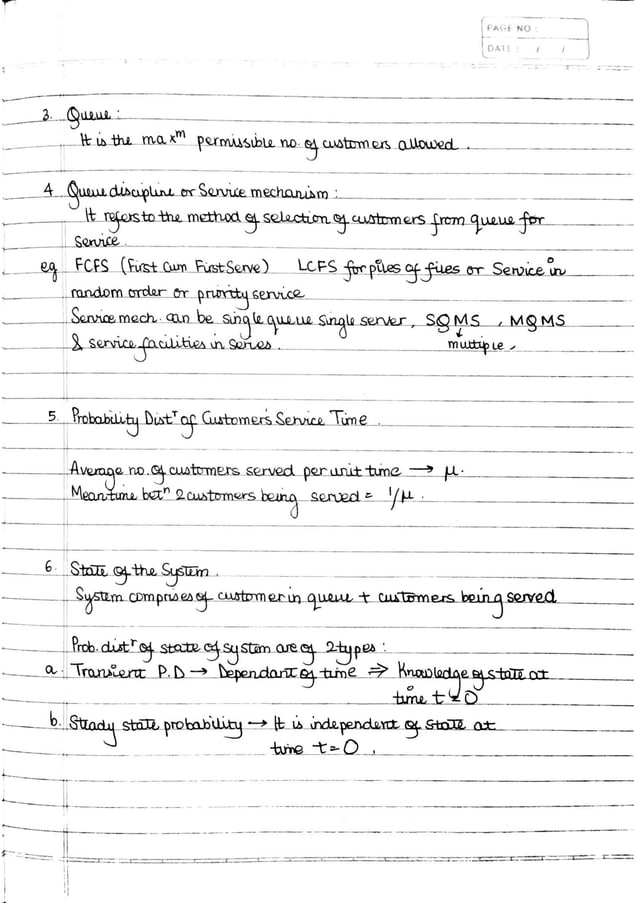 PAGE NO :
DATE : / /
3. Queue :
It is the max^m permissible no. of customers allowed .
4 Queue discipline or Service mechanism :
It refers to the method of selection of customers from queue for
service.
eg FCFS (First Cum First Serve) LCFS for piles of files or Service in
random order or priority service
Service mech. can be single queue single server, SQMS , MQMS
& service facilities in series . multiple .
5. Probability Dist^r of Customer's Service Time .
Average no. of customers served per unit time → μ.
Mean time bet^n 2 customers being served = 1/μ .
6. State of the System .
System comprises of customer in queue + customers being served
Prob. dist^r of state of system are of 2 types :
a. Transient P.D → Dependant of time ⇒ Knowledge of state at
time t=0
b. Steady state probability → It is independent of state at
time t=0 .